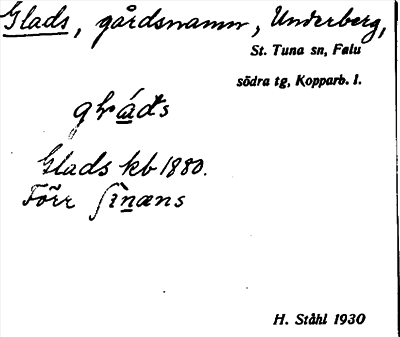 Glads, gårdsnamn, Underberg,
St. Tuna sn, Falu
södra tg, Kopparb. l.
Glads kb 1880.
Förr
H. Ståhl 1930